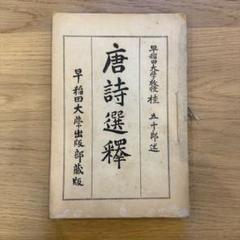 早稲田大学教授 桂 五十郎述
唐詩選釋
早稲田大學出版部蔵版